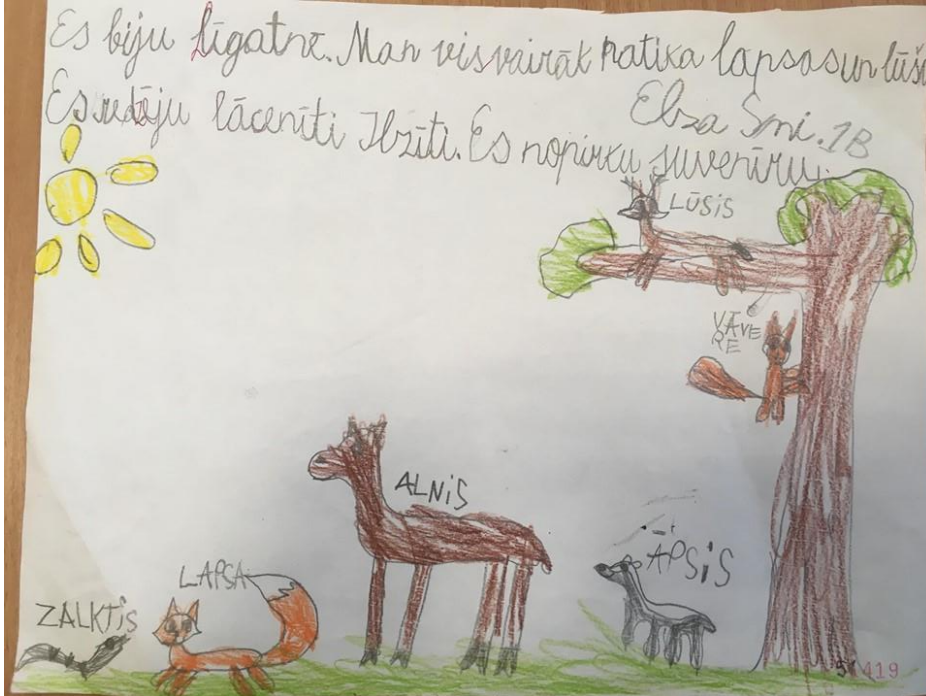 Es biju Līgatnē. Man visvairāk patika lapsas un lūši
Es redzēju lācenīti Ilzīti. Es nopirku suvenīru.
Elza Smi. 1B
LŪSIS
VĀVE
RE
ALNIS
ĀPSIS
LAPSA
ZALKTIS
419